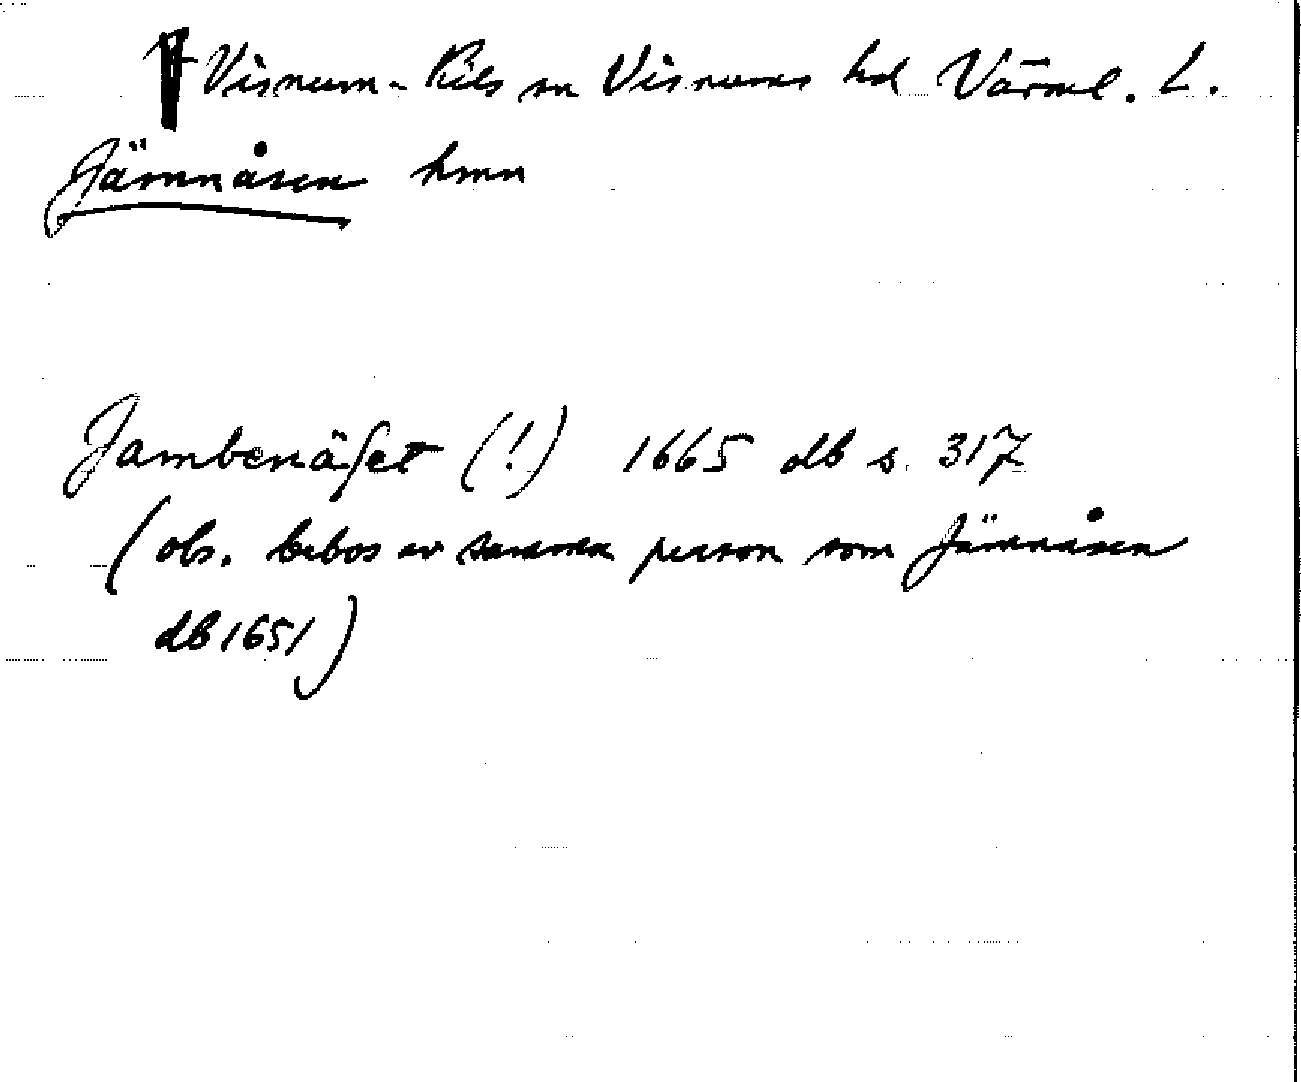 Visnum-Kils sn Visnums hd Värml. L.
Jämnåsen hmn
Jambenäset (!) 1665 db s. 317
(obs. bebos av samma person som Jämnåsen
db 1651)